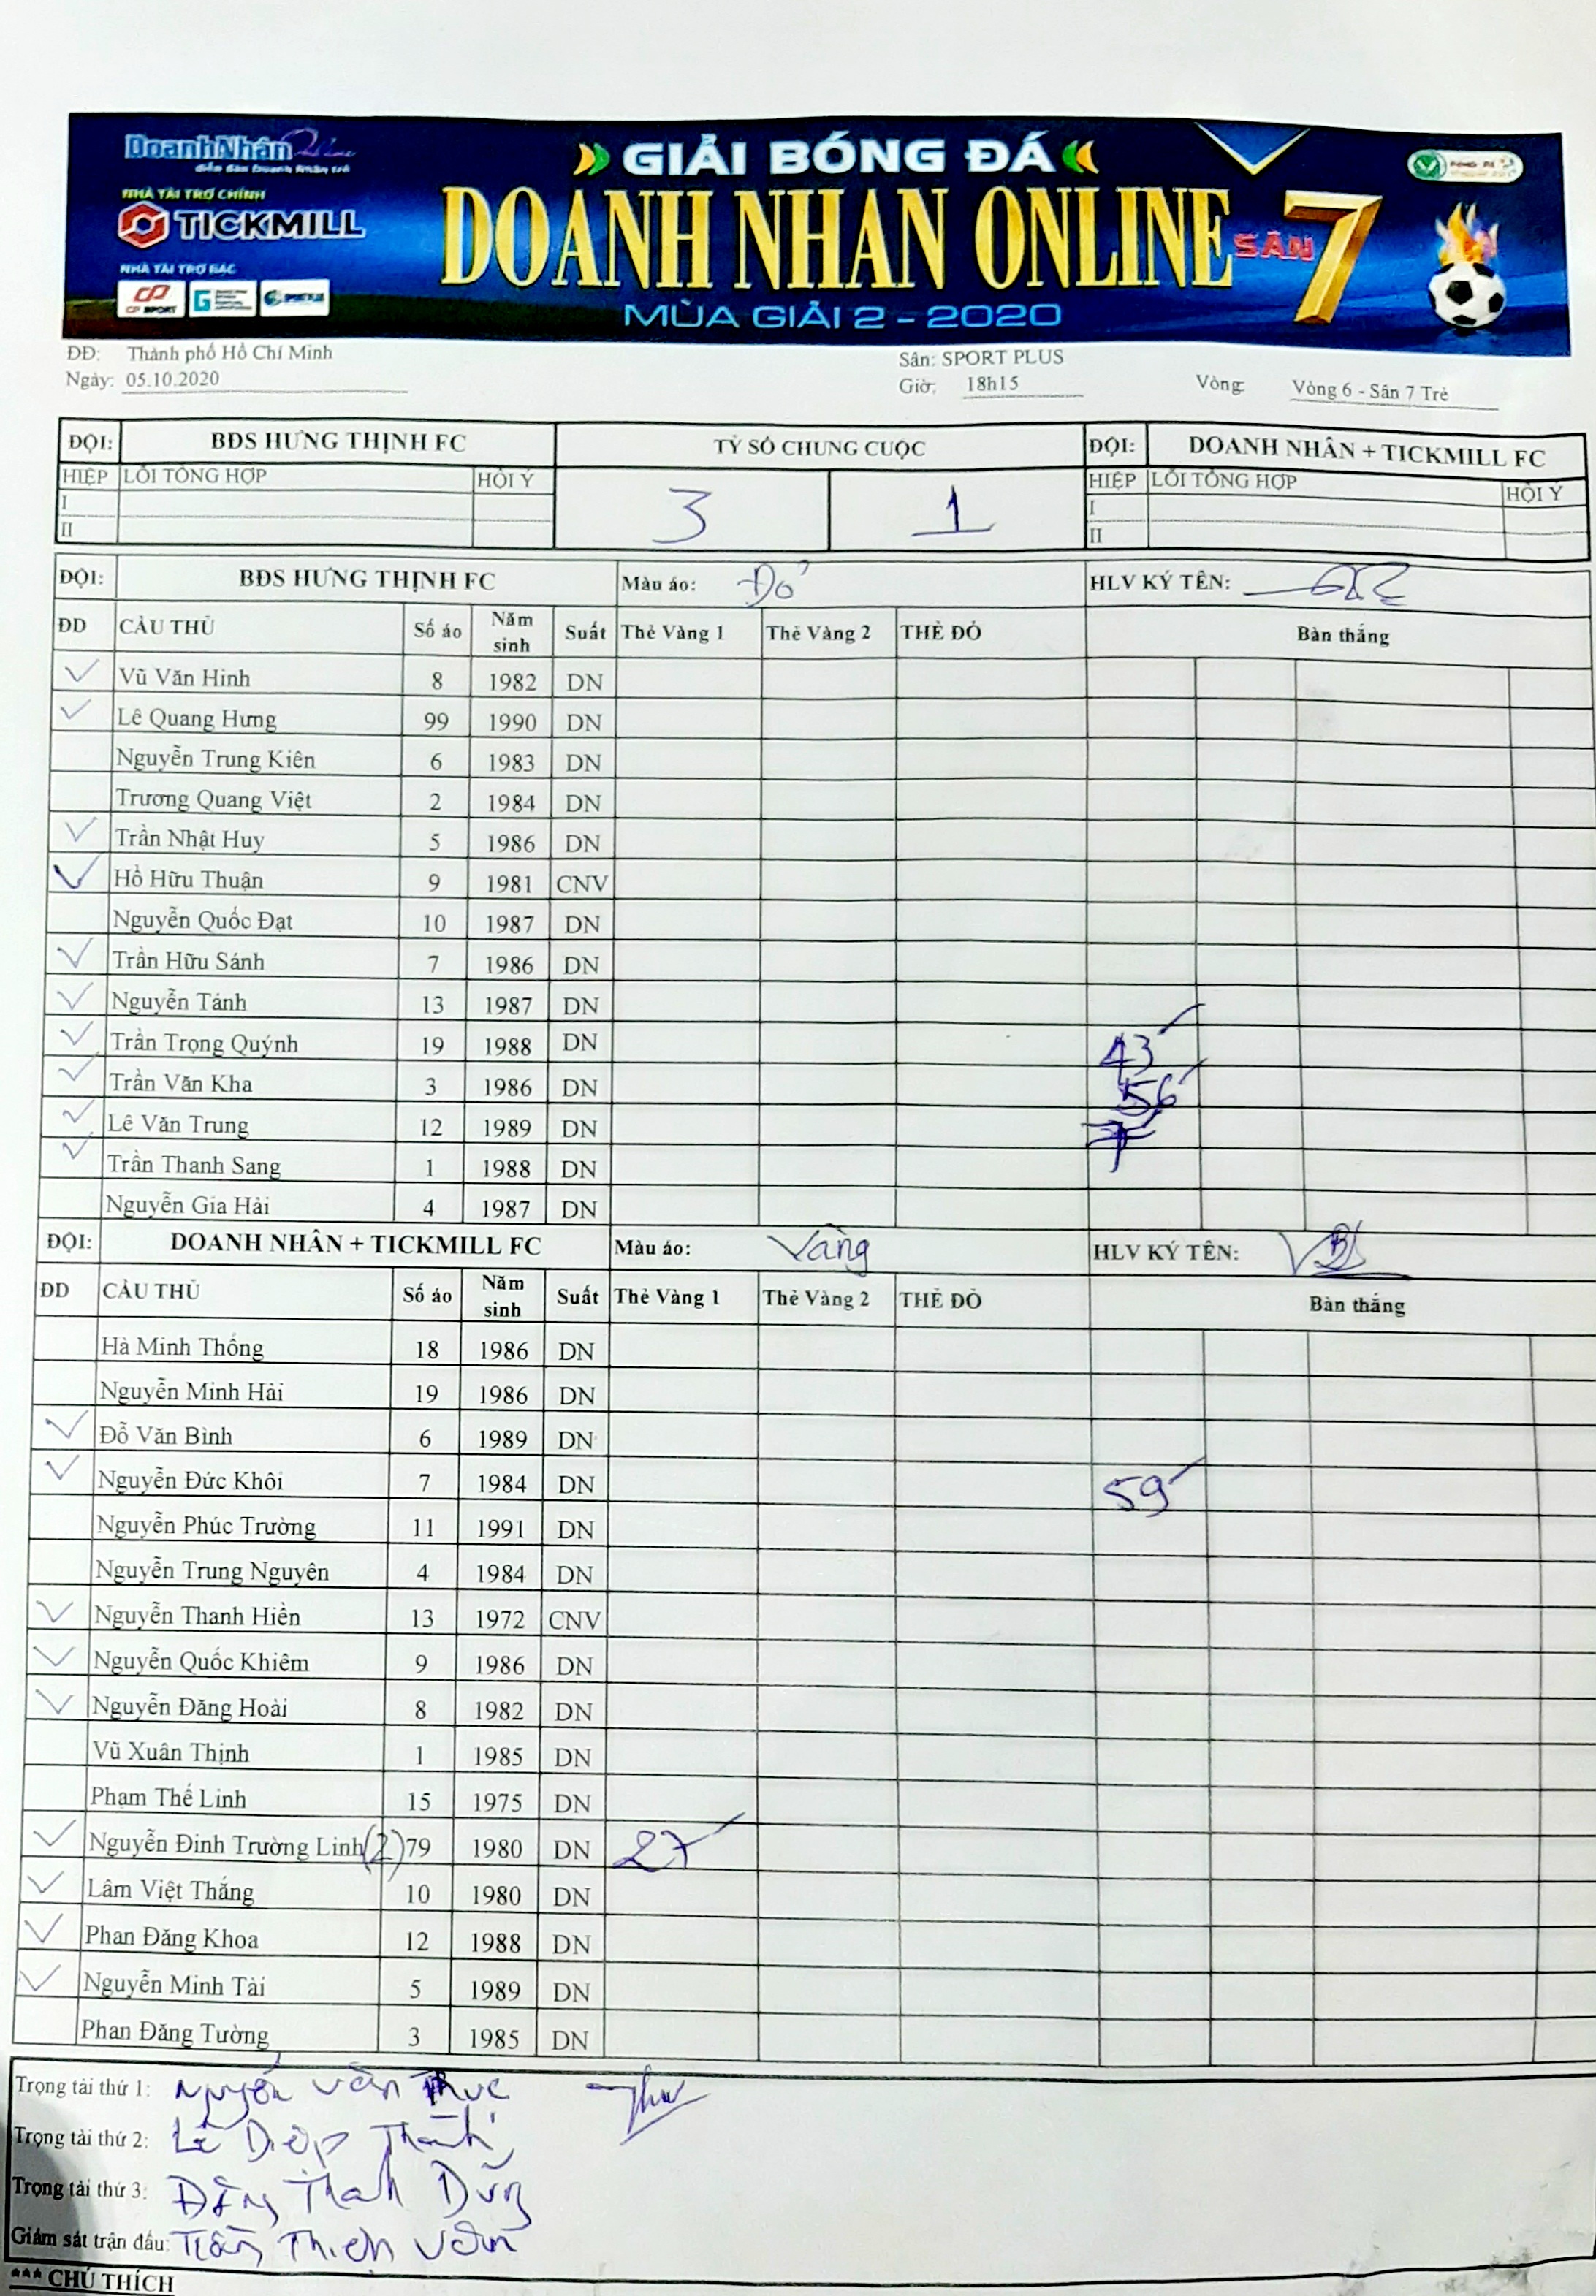 DoanhNhân Online
diễn đàn Doanh Nhân trẻ
NHÀ TÀI TRỢ CHÍNH
TICKMILL
NHÀ TÀI TRỢ BẠC
CP SPORT
SPORT PLUS
GIẢI BÓNG ĐÁ
DOANH NHAN ONLINE SÂN 7
MÙA GIẢI 2 - 2020
ĐĐ: Thành phố Hồ Chí Minh
Sân: SPORT PLUS
Ngày: 05.10.2020
Giờ: 18h15
Vòng: Vòng 6 - Sân 7 Trẻ
ĐỘI: BĐS HƯNG THỊNH FC TỶ SỐ CHUNG CUỘC ĐỘI: DOANH NHÂN + TICKMILL FC
HIỆP LỖI TỔNG HỢP HỘI Ý 3 1 HIỆP LỖI TỔNG HỢP HỘI Ý
I I
II II
ĐỘI: BĐS HƯNG THỊNH FC Màu áo: Đỏ HLV KÝ TÊN:
ĐD CẦU THỦ Số áo Năm sinh Suất Thẻ Vàng 1 Thẻ Vàng 2 THẺ ĐỎ Bàn thắng
Vũ Văn Hinh 8 1982 DN
Lê Quang Hưng 99 1990 DN
Nguyễn Trung Kiên 6 1983 DN
Trương Quang Việt 2 1984 DN
Trần Nhật Huy 5 1986 DN
Hồ Hữu Thuận 9 1981 CNV
Nguyễn Quốc Đạt 10 1987 DN
Trần Hữu Sánh 7 1986 DN
Nguyễn Tánh 13 1987 DN
Trần Trọng Quýnh 19 1988 DN 43'
Trần Văn Kha 3 1986 DN 56'
Lê Văn Trung 12 1989 DN 7'
Trần Thanh Sang 1 1988 DN
Nguyễn Gia Hải 4 1987 DN
ĐỘI: DOANH NHÂN + TICKMILL FC Màu áo: Vàng HLV KÝ TÊN:
ĐD CẦU THỦ Số áo Năm sinh Suất Thẻ Vàng 1 Thẻ Vàng 2 THẺ ĐỎ Bàn thắng
Hà Minh Thống 18 1986 DN
Nguyễn Minh Hải 19 1986 DN
Đỗ Văn Bình 6 1989 DN
Nguyễn Đức Khôi 7 1984 DN 59'
Nguyễn Phúc Trường 11 1991 DN
Nguyễn Trung Nguyên 4 1984 DN
Nguyễn Thanh Hiền 13 1972 CNV
Nguyễn Quốc Khiêm 9 1986 DN
Nguyễn Đăng Hoài 8 1982 DN
Vũ Xuân Thịnh 1 1985 DN
Phạm Thế Linh 15 1975 DN
Nguyễn Đình Trường Linh (2) 79 1980 DN 27'
Lâm Việt Thắng 10 1980 DN
Phan Đăng Khoa 12 1988 DN
Nguyễn Minh Tài 5 1989 DN
Phan Đăng Tường 3 1985 DN
Trọng tài thứ 1: Nguyễn Văn Thục
Trọng tài thứ 2: Lê Diệp Thành
Trọng tài thứ 3: Đặng Thanh Dũng
Giám sát trận đấu: Trần Thiện Văn
*** CHÚ THÍCH